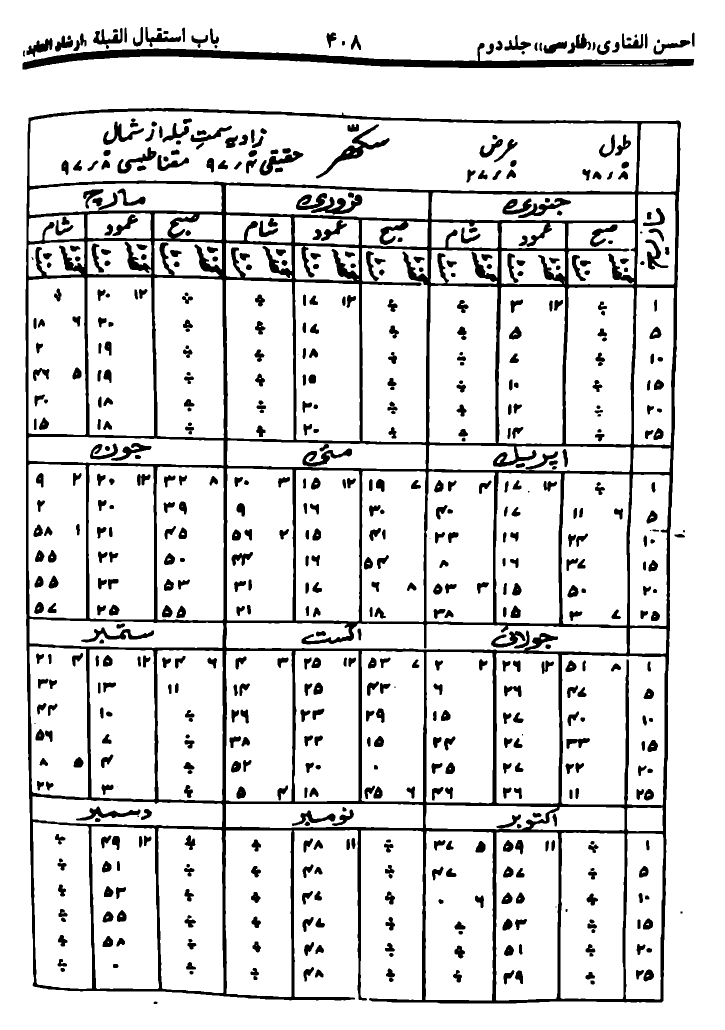 احسن الفتاوى ((فارسى)) جلد دوم ۴۰۸ باب استقبال القبلة (ارشاد العابد)
طول عرض سکھر زاویہ سمت قبلہ از شمال
۶۸/۸ ۲۷/۸ حقیقی ۹۷/۴ مقناطیسی ۹۷/۸
جنوری فروری مارچ
صبح عمود شام صبح عمود شام صبح عمود شام
گھنٹہ منٹ گھنٹہ منٹ گھنٹہ منٹ گھنٹہ منٹ گھنٹہ منٹ گھنٹہ منٹ گھنٹہ منٹ گھنٹہ منٹ گھنٹہ منٹ
۱ ÷ ۱۲ ۳ ÷ ÷ ۱۲ ۱۷ ÷ ÷ ۱۲ ۲۰ ÷
۵ ÷ ۵ ÷ ÷ ۱۷ ÷ ÷ ۲۰ ۶ ۱۸
۱۰ ÷ ۷ ÷ ÷ ۱۸ ÷ ÷ ۱۹ ۲
۱۵ ÷ ۱۰ ÷ ÷ ۱۵ ÷ ÷ ۱۹ ۵ ۴۶
۲۰ ÷ ۱۲ ÷ ÷ ۲۰ ÷ ÷ ۱۸ ۳۰
۲۵ ÷ ۱۴ ÷ ÷ ۲۰ ÷ ÷ ۱۸ ۱۵
اپریل مئی جون
۱ ÷ ۱۲ ۱۷ ۴ ۵۲ ۷ ۱۹ ۱۲ ۱۵ ۳ ۲۰ ۸ ۳۲ ۱۲ ۲۰ ۲ ۹
۵ ۶ ۱۱ ۱۷ ۴۰ ۳۰ ۱۶ ۹ ۳۹ ۲۰ ۲
۱۰ ۲۴ ۱۶ ۲۳ ۴۱ ۱۵ ۲ ۵۶ ۴۵ ۲۱ ۱ ۵۸
۱۵ ۳۷ ۱۶ ۸ ۵۴ ۱۶ ۴۴ ۵۰ ۲۲ ۵۵
۲۰ ۵۰ ۱۵ ۳ ۵۳ ۸ ۶ ۱۷ ۳۱ ۵۳ ۲۳ ۵۵
۲۵ ۷ ۳ ۱۵ ۳۸ ۱۸ ۱۸ ۲۱ ۵۵ ۲۵ ۵۷
جولائی اگست ستمبر
۱ ۸ ۵۱ ۱۲ ۲۶ ۲ ۲ ۷ ۵۳ ۱۲ ۲۵ ۳ ۴ ۶ ۲۴ ۱۲ ۱۵ ۴ ۲۱
۵ ۴۷ ۲۶ ۶ ۴۳ ۲۵ ۱۴ ۱۱ ۱۳ ۳۲
۱۰ ۴۰ ۲۷ ۱۵ ۲۹ ۲۳ ۲۶ ÷ ۱۰ ۴۴
۱۵ ۳۳ ۲۷ ۲۴ ۱۵ ۲۲ ۳۸ ÷ ۷ ۵۶
۲۰ ۲۲ ۲۷ ۳۵ ۰ ۲۰ ۵۲ ÷ ۴ ۵ ۸
۲۵ ۱۱ ۲۶ ۴۶ ۶ ۴۵ ۱۸ ۴ ۵ ÷ ۳ ۲۲
اکتوبر نومبر دسمبر
۱ ÷ ۱۱ ۵۹ ۵ ۳۷ ÷ ۱۱ ۴۸ ÷ ÷ ۱۲ ۴۹ ÷
۵ ÷ ۵۷ ۴۷ ÷ ۴۸ ÷ ÷ ۵۱ ÷
۱۰ ÷ ۵۵ ۶ ۰ ÷ ۴۷ ÷ ÷ ۵۳ ÷
۱۵ ÷ ۵۳ ÷ ÷ ۴۷ ÷ ÷ ۵۵ ÷
۲۰ ÷ ۵۱ ÷ ÷ ۴۸ ÷ ÷ ۵۸ ÷
۲۵ ÷ ۴۹ ÷ ÷ ۴۸ ÷ ÷ ۰ ÷